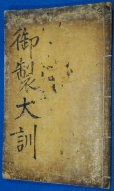 御製大訓